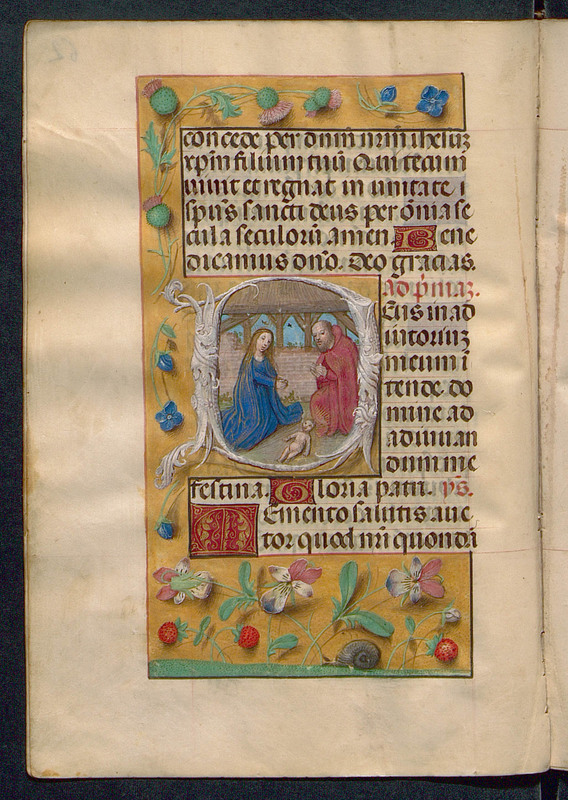 concede per dnm̄ nrm̄ ihesuz
xp̄m filium tuū Qui tecum
uiuit et regnat in unitate
spūs sancti deus per om̄ia se
cula seculorū amen. Bene
dicamus dn̄o. Deo gracias.
Ad p̄maz.
Eus in ad
iutoriuz
meum ī
tende do
mine ad
adiuuan
dum me
festina. Gloria patri. ps̄.
Memento salutis auc
tor quod nr̄i quondā